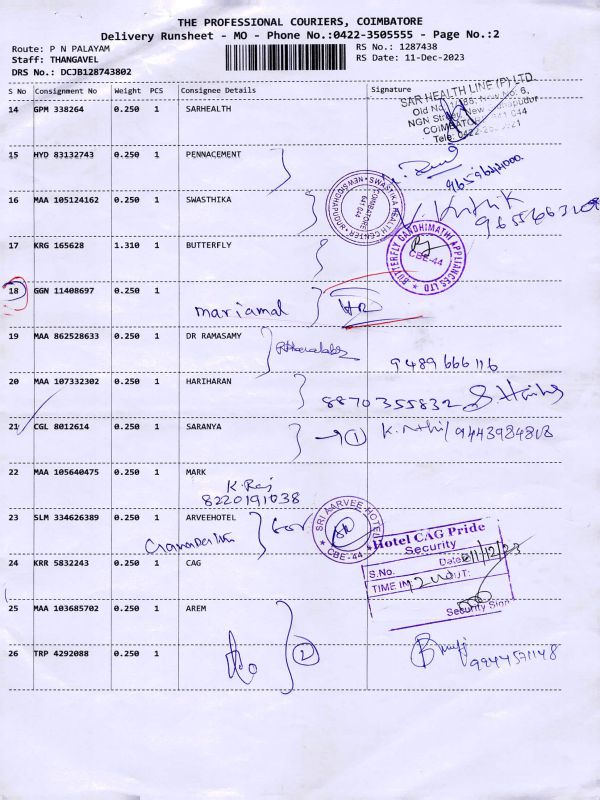 THE PROFESSIONAL COURIERS, COIMBATORE
Delivery Runsheet - MO - Phone No.:0422-3505555 - Page No.:2
Route: P N PALAYAM
Staff: THANGAVEL
DRS No.: DCJB128743802
RS No.: 1287438
RS Date: 11-Dec-2023
S No Consignment No Weight PCS Consignee Details Signature
14 GPM 338264 0.250 1 SARHEALTH
SAR HEALTH LINE (P) LTD.
15 HYD 83132743 0.250 1 PENNACEMENT
16 MAA 105124162 0.250 1 SWASTIKA
SWASTIKA HEALTH CENTER
NEW SIDDHAPUDUR
COIMBATORE
641 044
17 KRG 165628 1.310 1 BUTTERFLY
BUTTERFLY GANDHIMATHI APPLIANCES LTD
CBE-44
18 GGN 11408697 0.250 1
mariamal
19 MAA 862528633 0.250 1 DR RAMASAMY
9489666116
20 MAA 107332302 0.250 1 HARIHARAN
8870355832
21 CGL 8012614 0.250 1 SARANYA
1
22 MAA 105640475 0.250 1 MARK
K. Raj
8220191038
23 SLM 334626389 0.250 1 ARVEEHOTEL
for
SRI AARVEE HOTEL
CBE-44
Hotel CAG Pride
Security
S.No. Date 11/12/23
TIME IN OUT:
Security Sign
24 KRR 5832243 0.250 1 CAG
25 MAA 103685702 0.250 1 AREM
2
26 TRP 4292088 0.250 1